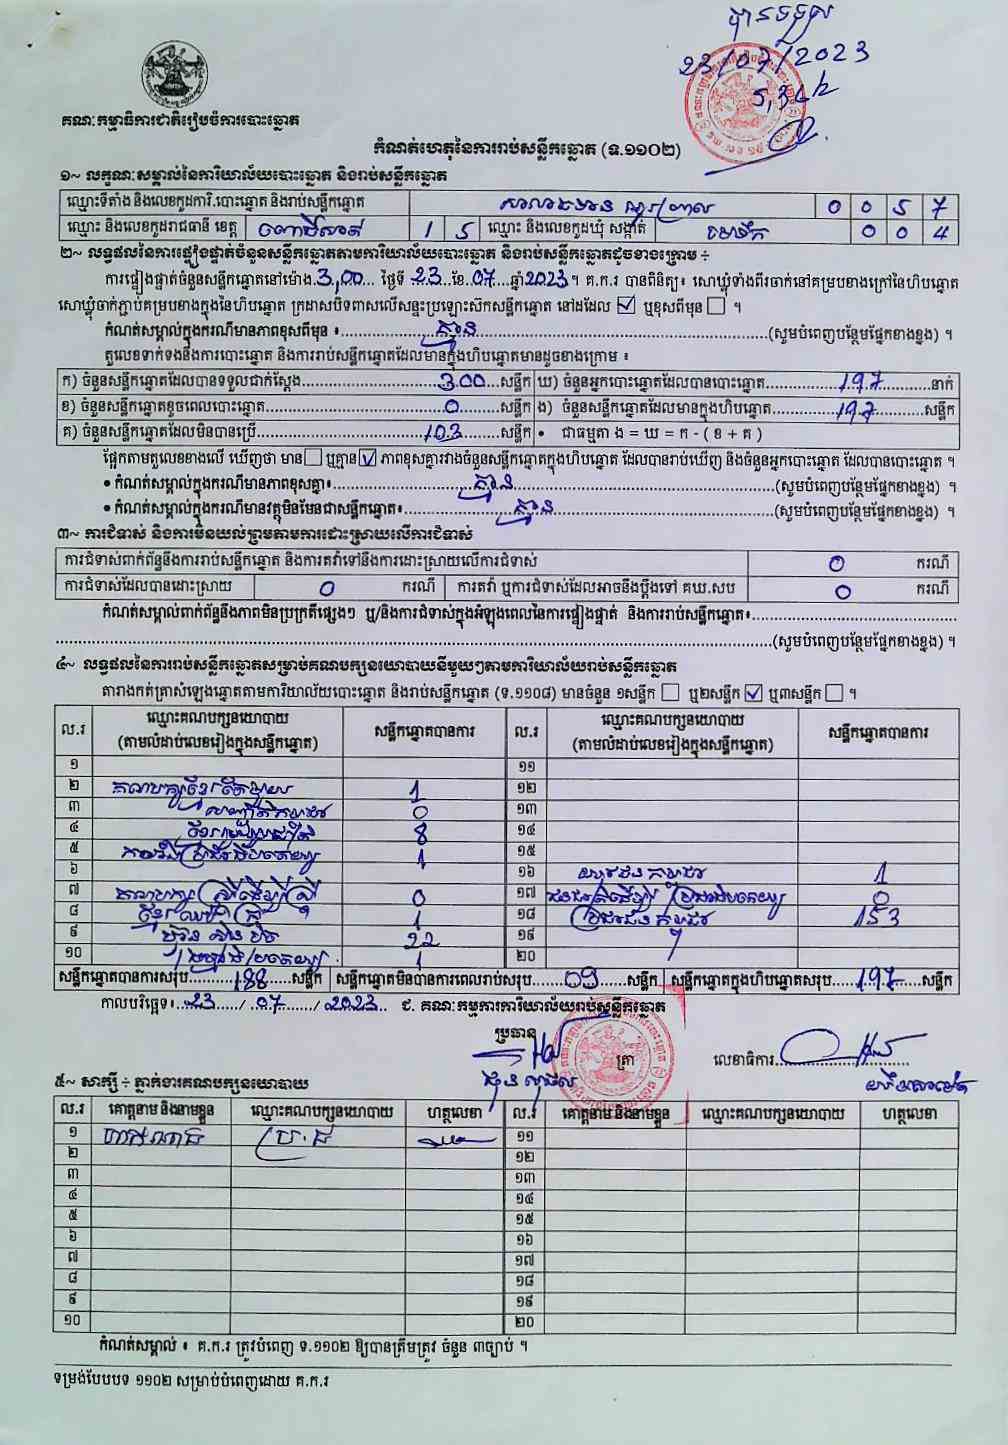 បានទទួល
23/07/2023
5,34
គណៈកម្មាធិការជាតិរៀបចំការបោះឆ្នោត
កំណត់ហេតុនៃការរាប់សន្លឹកឆ្នោត (ទ.១១០២)
១~ លក្ខណៈសម្គាល់នៃការិយាល័យបោះឆ្នោត និងរាប់សន្លឹកឆ្នោត
ឈ្មោះទីតាំង និងលេខកូដការិ.បោះឆ្នោត និងរាប់សន្លឹកឆ្នោត 0 0 5 7
ឈ្មោះ និងលេខកូដរាជធានី ខេត្ត ពោធិ៍សាត់ 1 5 ឈ្មោះ និងលេខកូដឃុំ សង្កាត់ មេទឹក 0 0 4
២~ លទ្ធផលនៃការផ្ទៀងផ្ទាត់ចំនួនសន្លឹកឆ្នោតតាមការិយាល័យបោះឆ្នោត និងរាប់សន្លឹកឆ្នោតដូចខាងក្រោម ÷
ការផ្ទៀងផ្ទាត់ចំនួនសន្លឹកឆ្នោតនៅម៉ោង.3,00... ថ្ងៃទី .23...ខែ.07...ឆ្នាំ2023។ គ.ក.រ បានពិនិត្យ៖ សោឃ្លុំទាំងពីរចាក់នៅគម្របខាងក្រៅនៃហិបឆ្នោត
សោឃ្លុំចាក់ភ្ជាប់គម្របខាងក្នុងនៃហិបឆ្នោត ក្រដាសបិទពាសលើសន្ទះប្រឡោះស៊កសន្លឹកឆ្នោត នៅដដែល ☑ ឬខុសពីមុន ☐ ។
កំណត់សម្គាល់ក្នុងករណីមានភាពខុសពីមុន ៖ គ្មាន (សូមបំពេញបន្ថែមផ្នែកខាងខ្នង) ។
តួលេខទាក់ទងនឹងការបោះឆ្នោត និងការរាប់សន្លឹកឆ្នោតដែលមានក្នុងហិបឆ្នោតមានដូចខាងក្រោម ៖
ក) ចំនួនសន្លឹកឆ្នោតដែលបានទទួលជាក់ស្តែង 300 សន្លឹក ឃ) ចំនួនអ្នកបោះឆ្នោតដែលបានបោះឆ្នោត 197 នាក់
ខ) ចំនួនសន្លឹកឆ្នោតខូចពេលបោះឆ្នោត 0 សន្លឹក ង) ចំនួនសន្លឹកឆ្នោតដែលមានក្នុងហិបឆ្នោត 197 សន្លឹក
គ) ចំនួនសន្លឹកឆ្នោតដែលមិនបានប្រើ 103 សន្លឹក • ជាធម្មតា ង = ឃ = ក - ( ខ + គ )
ផ្អែកតាមតួលេខខាងលើ ឃើញថា មាន☐ ឬគ្មាន☑ ភាពខុសគ្នារវាងចំនួនសន្លឹកឆ្នោតក្នុងហិបឆ្នោត ដែលបានរាប់ឃើញ និងចំនួនអ្នកបោះឆ្នោត ដែលបានបោះឆ្នោត ។
• កំណត់សម្គាល់ក្នុងករណីមានភាពខុសគ្នា៖ គ្មាន (សូមបំពេញបន្ថែមផ្នែកខាងខ្នង) ។
• កំណត់សម្គាល់ក្នុងករណីមានវត្ថុមិនមែនជាសន្លឹកឆ្នោត៖ គ្មាន (សូមបំពេញបន្ថែមផ្នែកខាងខ្នង) ។
៣~ ការជំទាស់ និងការមិនយល់ព្រមតាមការដោះស្រាយលើការជំទាស់
ការជំទាស់ពាក់ព័ន្ធនឹងការរាប់សន្លឹកឆ្នោត និងការតវ៉ាទៅនឹងការដោះស្រាយលើការជំទាស់ 0 ករណី
ការជំទាស់ដែលបានដោះស្រាយ 0 ករណី ការតវ៉ា ឬការជំទាស់ដែលអាចនឹងប្តឹងទៅ គឃ.សប 0 ករណី
កំណត់សម្គាល់ពាក់ព័ន្ធនឹងភាពមិនប្រក្រតីផ្សេងៗ ឬ/និងការជំទាស់ក្នុងអំឡុងពេលនៃការផ្ទៀងផ្ទាត់ និងការរាប់សន្លឹកឆ្នោត៖
(សូមបំពេញបន្ថែមផ្នែកខាងខ្នង) ។
៤~ លទ្ធផលនៃការរាប់សន្លឹកឆ្នោតសម្រាប់គណបក្សនយោបាយនីមួយៗតាមការិយាល័យរាប់សន្លឹកឆ្នោត
តារាងកត់ត្រាសំឡេងឆ្នោតតាមការិយាល័យបោះឆ្នោត និងរាប់សន្លឹកឆ្នោត (ទ.១១០៨) មានចំនួន ១សន្លឹក ☐ ឬ២សន្លឹក ☑ ឬ៣សន្លឹក ☐ ។
ល.រ ឈ្មោះគណបក្សនយោបាយ (តាមលំដាប់លេខរៀងក្នុងសន្លឹកឆ្នោត) សន្លឹកឆ្នោតបានការ ល.រ ឈ្មោះគណបក្សនយោបាយ (តាមលំដាប់លេខរៀងក្នុងសន្លឹកឆ្នោត) សន្លឹកឆ្នោតបានការ
១ ១១
២ គណបក្ស 1 ១២
៣ 0 ១៣
៤ 8 ១៤
៥ 1 ១៥
៦ ១៦ 1
៧ គណបក្ស ស្ត្រីដើម្បីស្ត្រី 0 ១៧ 0
៨ ខ្មែរ 1 ១៨ ប្រជាជន កម្ពុជា 153
៩ ហ្វ៊ុនស៊ិនប៉ិច 22 ១៩
១០ 1 ២០
សន្លឹកឆ្នោតបានការសរុប 188 សន្លឹក សន្លឹកឆ្នោតមិនបានការពេលរាប់សរុប 09 សន្លឹក សន្លឹកឆ្នោតក្នុងហិបឆ្នោតសរុប 197 សន្លឹក
កាលបរិច្ឆេទ៖ 23 / 07 / 2023 ជ. គណៈកម្មការការិយាល័យរាប់សន្លឹកឆ្នោត
ប្រធាន
ត្រា
លេខាធិការ
៥~ សាក្សី ÷ ភ្នាក់ងារគណបក្សនយោបាយ
ល.រ គោត្តនាម និងនាមខ្លួន ឈ្មោះគណបក្សនយោបាយ ហត្ថលេខា ល.រ គោត្តនាម និងនាមខ្លួន ឈ្មោះគណបក្សនយោបាយ ហត្ថលេខា
១ ប្រ.ជ ១១
២ ១២
៣ ១៣
៤ ១៤
៥ ១៥
៦ ១៦
៧ ១៧
៨ ១៨
៩ ១៩
១០ ២០
កំណត់សម្គាល់ ៖ គ.ក.រ ត្រូវបំពេញ ទ.១១០២ ឱ្យបានត្រឹមត្រូវ ចំនួន ៣ច្បាប់ ។
ទម្រង់បែបបទ ១១០២ សម្រាប់បំពេញដោយ គ.ក.រ